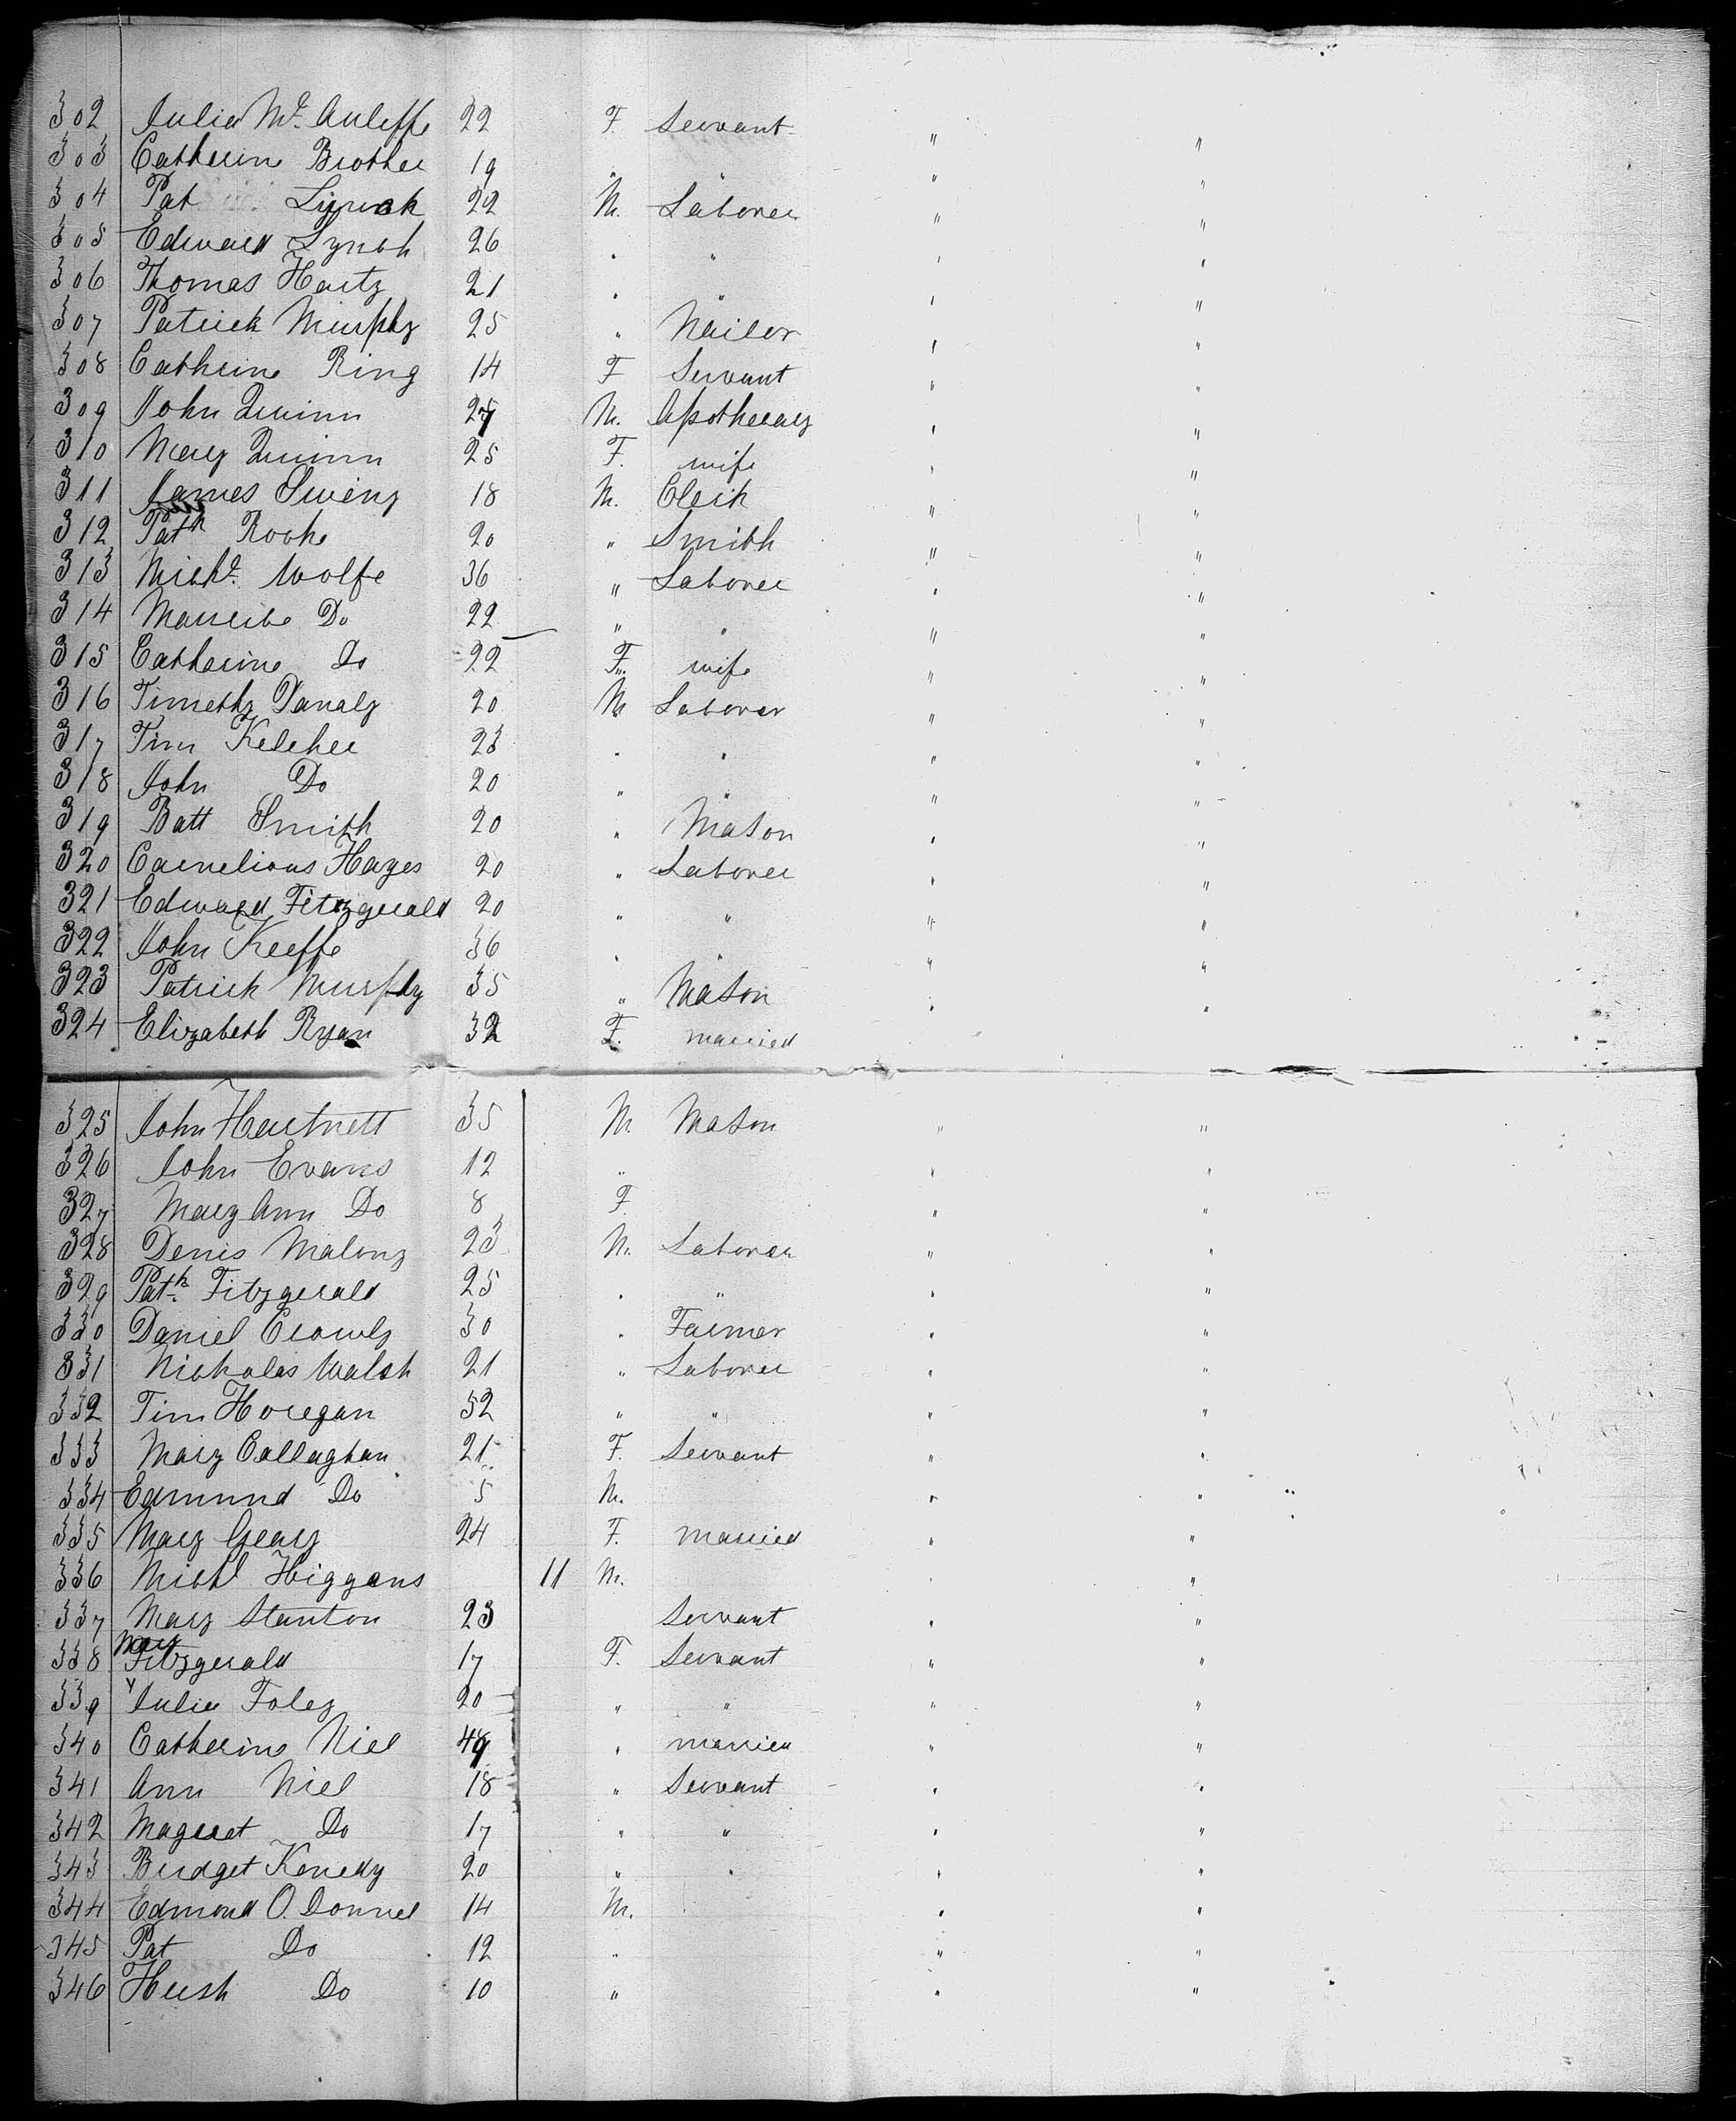 302 Julia McAuleffe 22 F. Servant " "
303 Catherine Brother 19 " " " "
304 Pat Lynch 22 M. Laborer " "
305 Edward Lynch 26 " " " "
306 Thomas Harty 21 " " " "
307 Patrick Murphy 25 " Nailor " "
308 Cathrine Ring 14 F Servant " "
309 John Quinn 27 M. Apothecary " "
310 Mary Quinn 25 F. wife " "
311 James Sweny 18 M. Clerk " "
312 Patk Rooke 20 " Smith " "
313 Michl. Wolfe 36 " Laborer " "
314 Maurice Do 22 " " " "
315 Catherine Do 22 F. wife " "
316 Timothy Danaly 20 M Laborer " "
317 Tim Keleher 23 " " " "
318 John Do 20 " " " "
319 Batt Smith 20 " Mason " "
320 Cornelious Hayes 20 " Laborer " "
321 Edward Fitzgerald 20 " " " "
322 John Keeffe 36 " " " "
323 Patrick Murphy 35 " Mason " "
324 Elizabeth Ryan 32 F. married
325 John Hartnett 35 M. Mason " "
326 John Evans 12 " " "
327 Mary Ann Do 8 F. " "
328 Denis Malony 23 M. Laborer " "
329 Patk. Fitzgerald 25 " " " "
330 Daniel Crowly 30 " Farmer " "
331 Nicholas Walsh 21 " Laborer " "
332 Tim Horegan 52 " " " "
333 Mary Callaghan 21 F. Servant " "
334 Edmund Do 5 M. " "
335 Mary Geary 24 F. married " "
336 Michl Higgans 11 M. " "
337 Mary Stanton 23 Servant " "
338 Mary Fitzgerald 17 F. Servant " "
339 Julia Foley 20 " " " "
340 Catherine Niel 49 " married " "
341 Ann Niel 18 " Servant " "
342 Magret Do 17 " " " "
343 Bridget Kenedy 20 " " " "
344 Edmond O. Donnel 14 M. " "
345 Pat Do 12 " " "
346 Hush Do 10 " " "